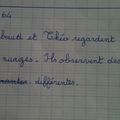 64
et Théo regardent
nuages. Ils observent des
différentes.